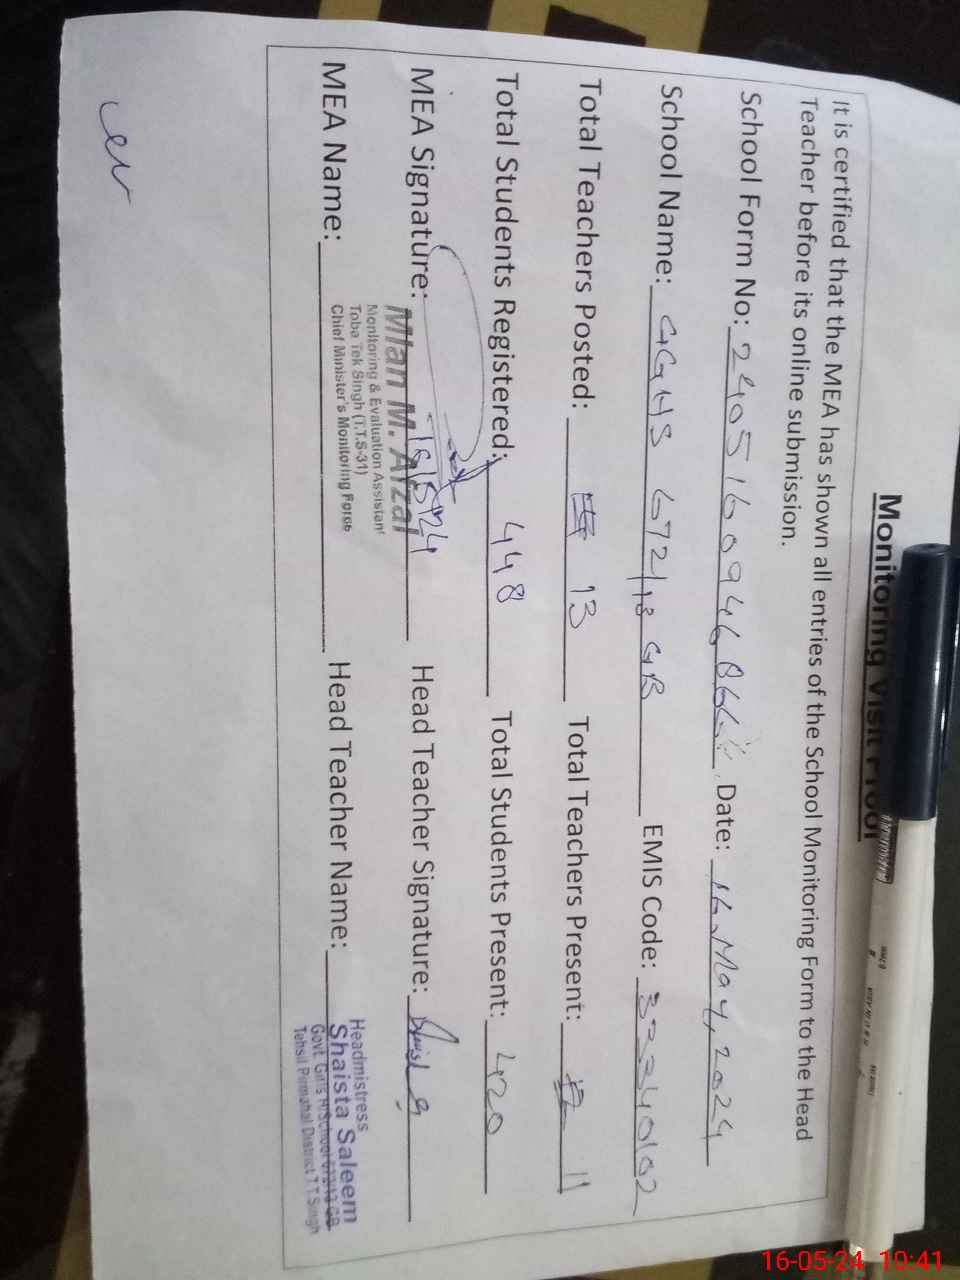 Monitoring Visit Proof
It is certified that the MEA has shown all entries of the School Monitoring Form to the Head
Teacher before its online submission.
School Form No: Date: 16, May, 2024
School Name: GGHS EMIS Code: 33340102
Total Teachers Posted: 13 Total Teachers Present: 11
Total Students Registered: 448 Total Students Present: 420
MEA Signature: Head Teacher Signature:
Mian M. Afzal
16/5/24
Monitoring & Evaluation Assistant
Toba Tek Singh (T.T.S-31)
Chief Minister's Monitoring Force
MEA Name: Head Teacher Name:
Headmistress
Shaista Saleem
Govt. Girls H/School GB
Tehsil Pirmahal District T.T.Singh
16-05-24 10:41